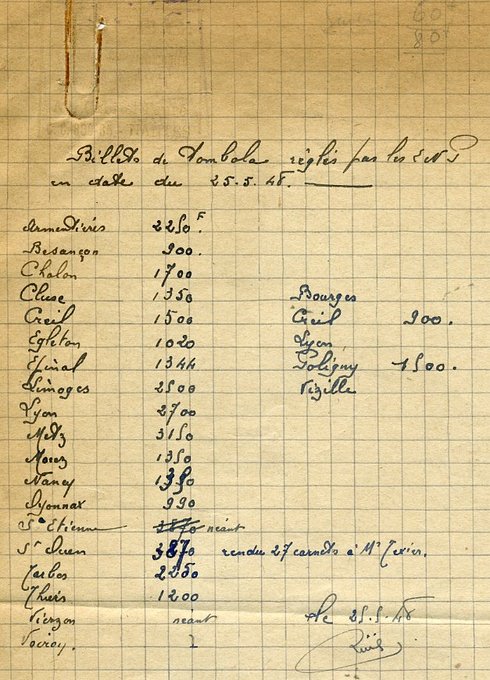 60
80
Billets de Tombola réglés par les ENP
en date du 25.5.48.
Armentières 2250 F.
Besançon 900.
Chalon 1700
Cluse 1350
Creil 1500
Egleton 1020
Epinal 1344
Limoges 2500
Lyon 2700
Metz 3150
Morez 1350
Nancy
Oyonnax 990
St Etienne 3870 néant
St Ouen 3870 rendu 27 carnets à Mr Texier.
Tarbes 2250
Thiers 1200
Vierzon néant
Voiron.
Bourges
Creil 900.
Lyon
Poligny 1500.
Vizille
le 25.5.48